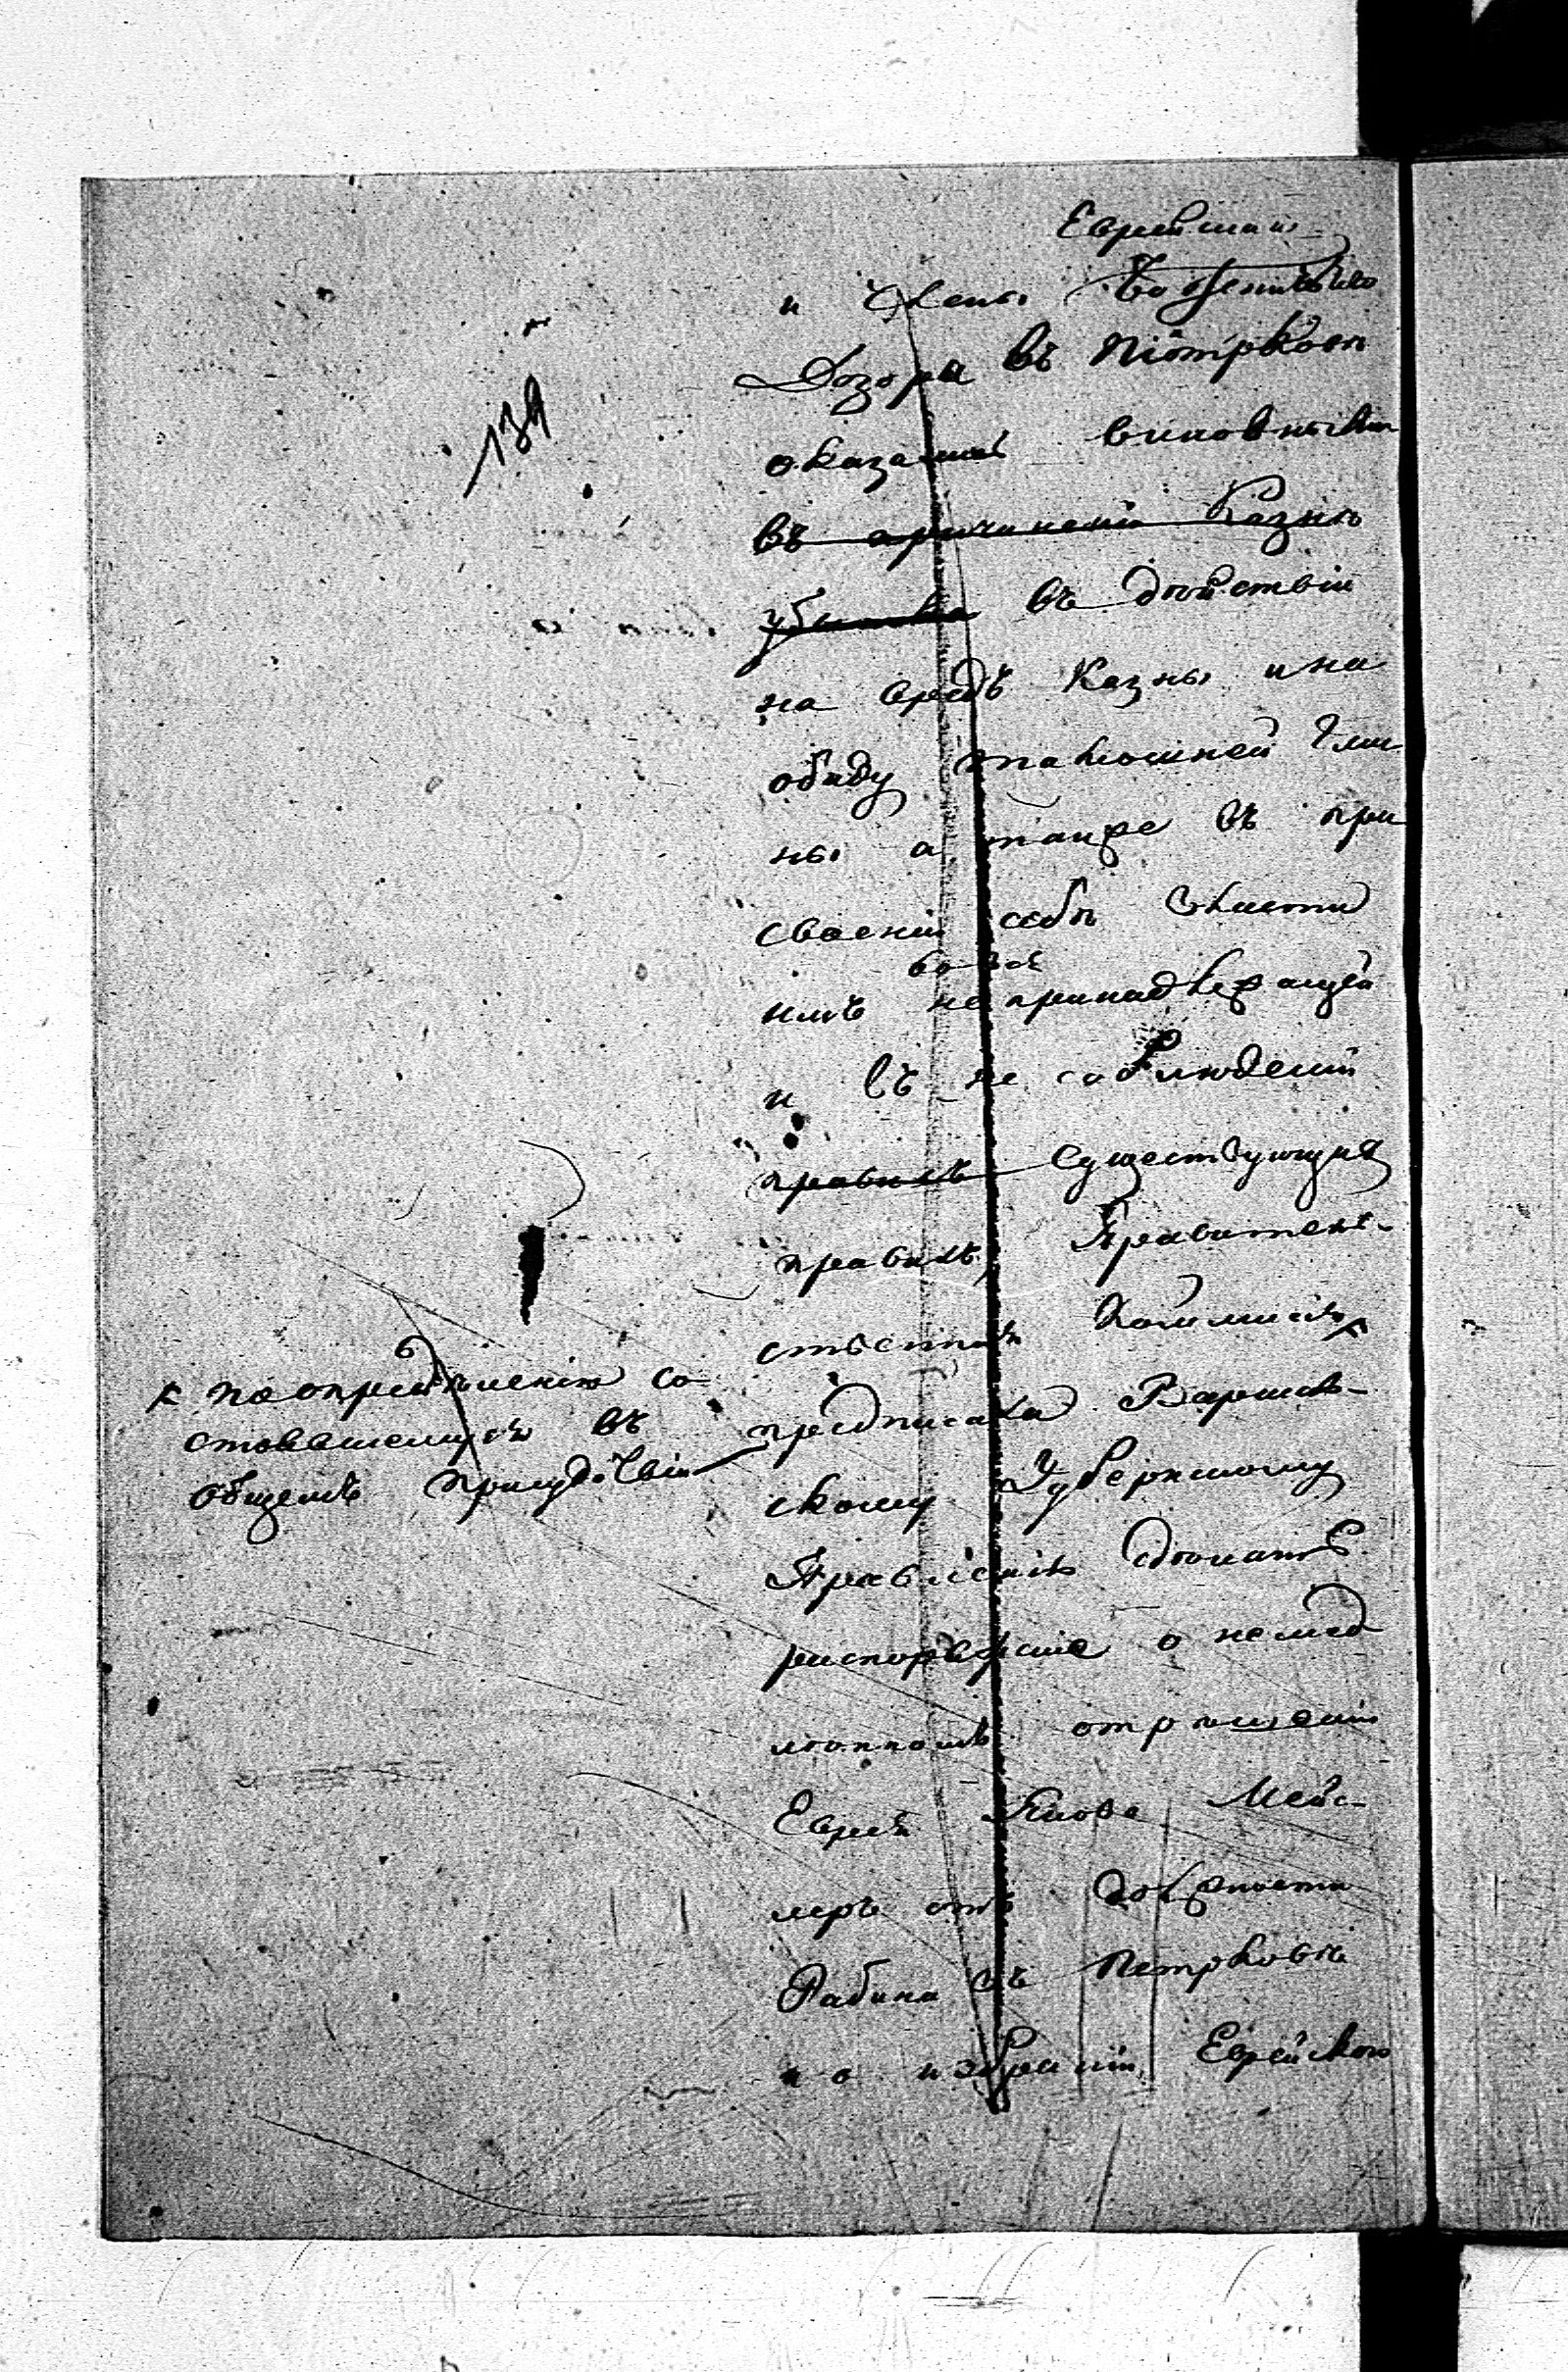 139
Еврейскаго
и Члены Божничьяго
Дозора въ Піотрковѣ
оказались виновными
въ причиненіи Казнѣ
убытка въ дѣйствіи
на вредъ Казны и на
обиду тамошней Гми
ны а также въ при
своеніи себѣ власти
имъ не принадлежащей
и въ не соблюденіи
правилъ существующихъ
правилъ, Правитель-
ственная Коммисія
предписала Варшав-
скому Губернскому
Правленію сдѣлать
распоряженіе о немед
лѣнномъ отрѣшеніи
Еврея Якова Мейз-
лера отъ должности
Рабина въ Петрковѣ
и о избраніи Еврейскаго
по опредѣленію со-
стоявшемуся въ
общемъ присудствіи